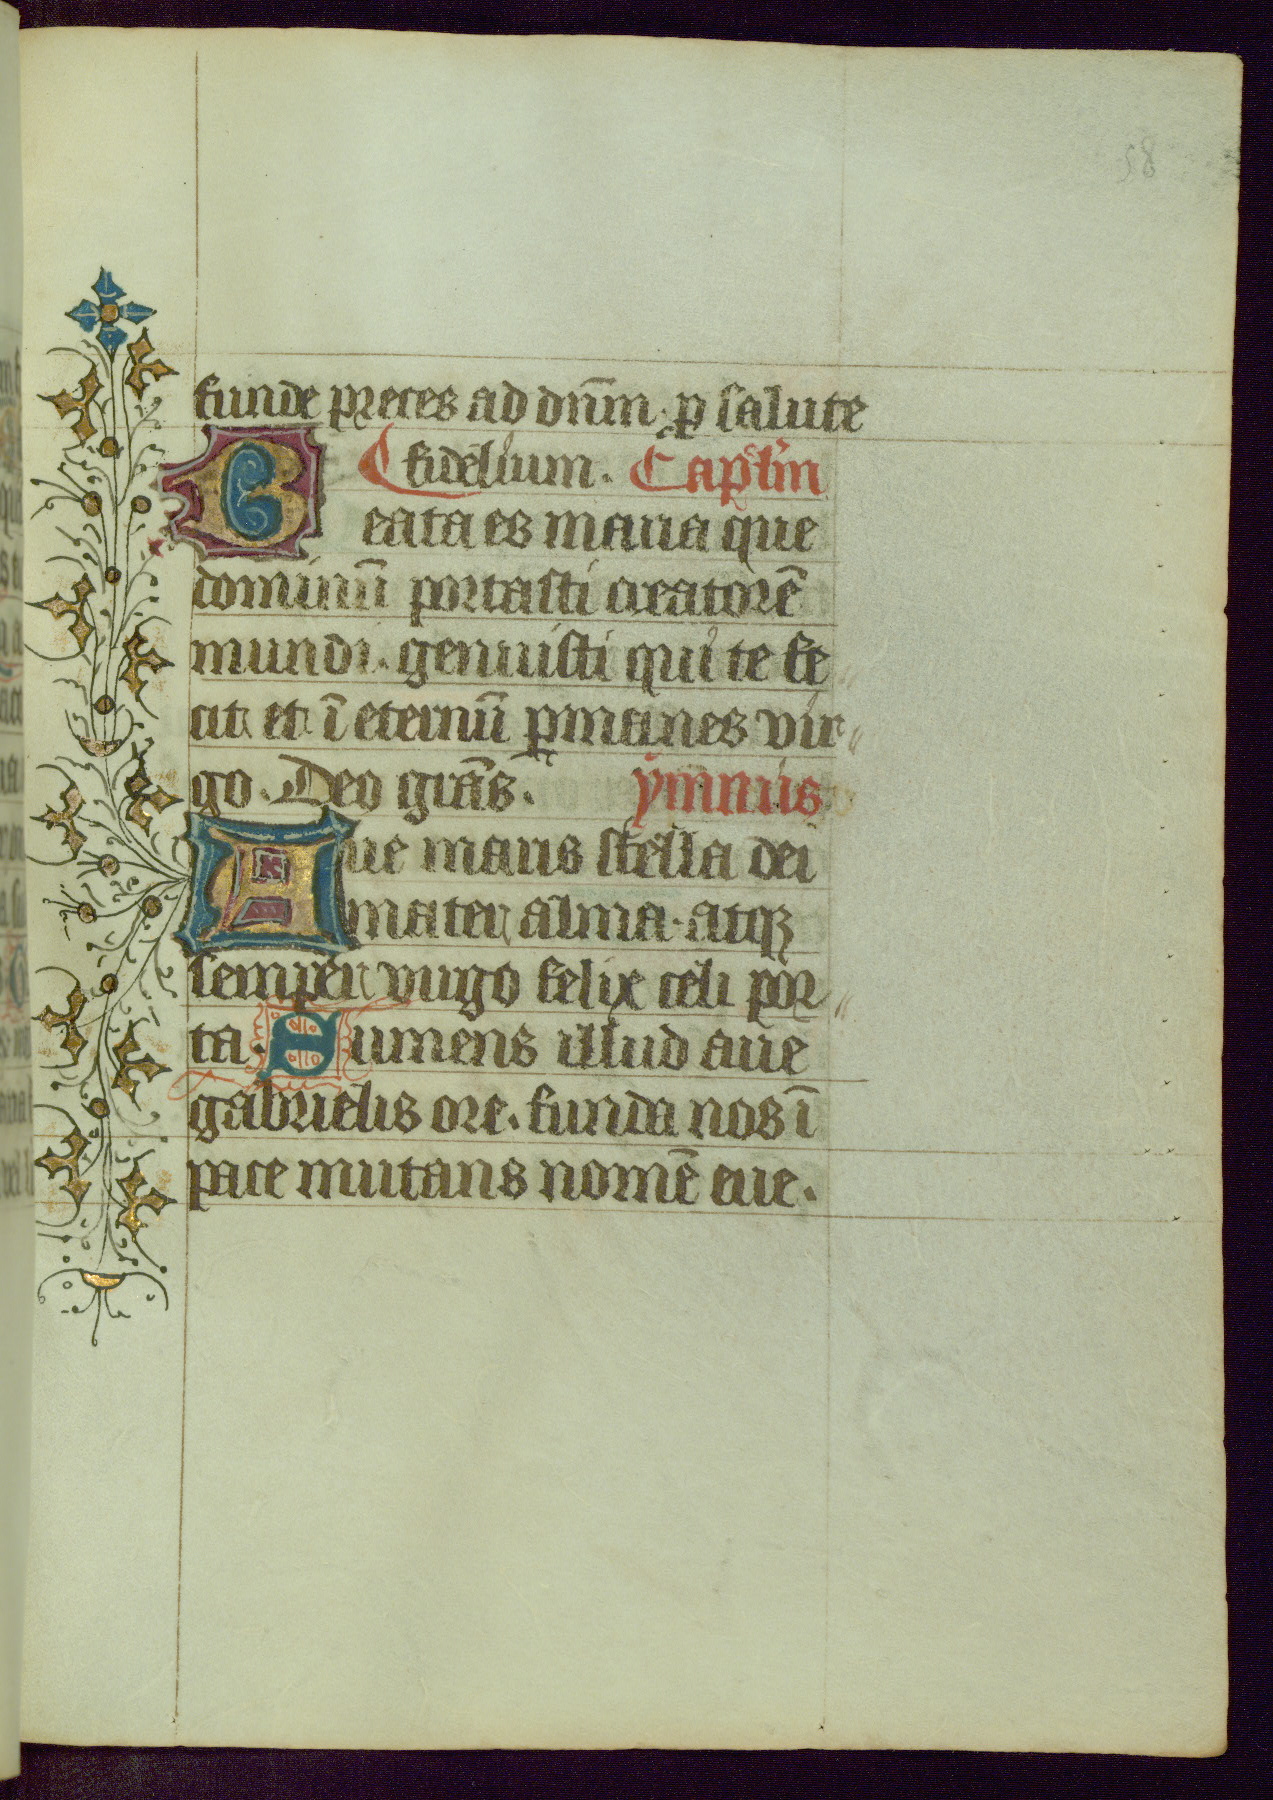 58
funde preces ad dn̄m. ꝑ salute
fidelium. Capl̄m
Beata es maria que
dominū portasti creatorē
mundi. genuisti qui te fe
cit et ī eternū ꝑmanes vir
go. Deo grās. ymnus
Aue maris stella dei
mater alma. atqꝫ
semper virgo felix celi por
ta. Sumens illud aue
gabrielis ore. funda nos ī
pace mutans nomē eue.